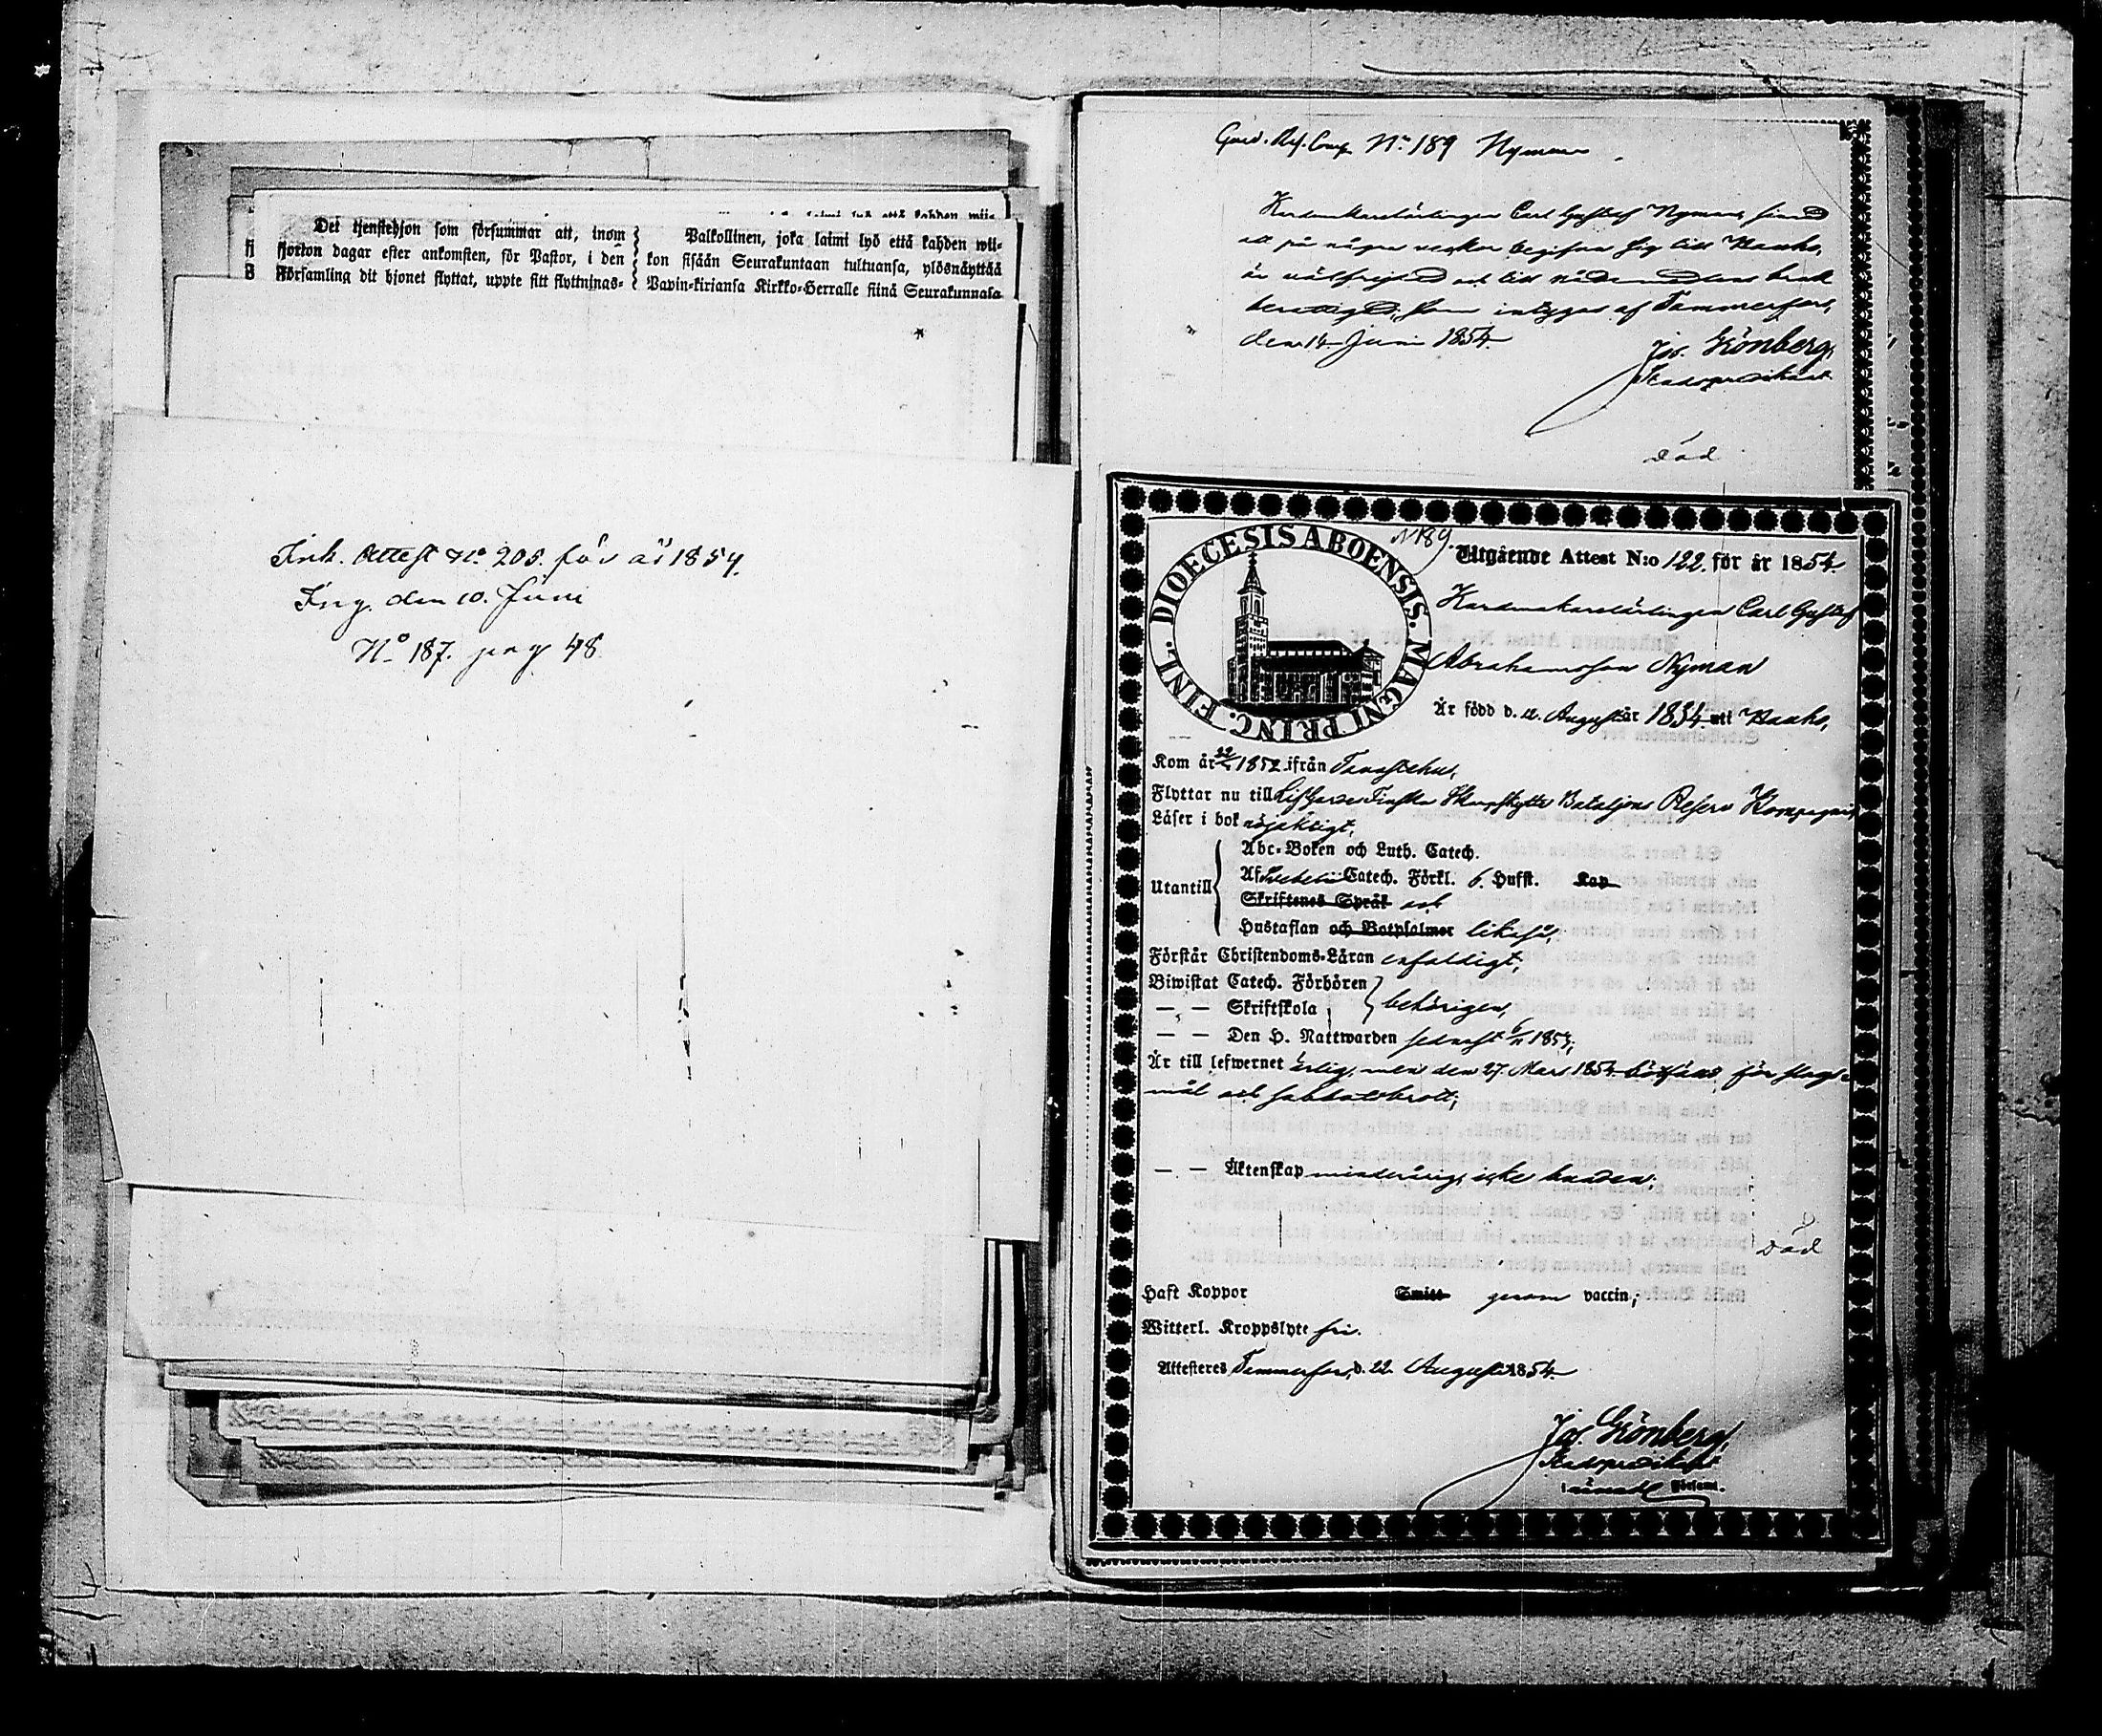 Det tjenstehjon som försummar att, inom
fjorton dagar efter ankomsten, för Pastor, i den
Församling dit hjonet flyttat, uppte sitt flyttnings-
Palkollinen, joka laimi lyö että kahden wii-
kon sisään Seurakuntaan tultuansa, ylösnäyttää
Papin-kirjansa Kirkko-Herralle siinä Seurakunnasa
Ink. Attest No 205. för år 1854.
Ing. den 10. Juni
No 187. pag 48
Gard. Res. Comp. No 189 Nyman
Hattmakarelärlingen Carl Gustaf Nyman,
att på några veckor begifva sig till
är välfrejdad och till nådemedlens bruk
berättigad; som intygas af Tammerfors,
den 14 Juni 1854.
Jos. Grönberg,
Stadspredikant
Död
DIOECESIS ABOENSIS. MAGNI PRINC. FINL.
N 189.
Utgående Attest N:o 122. för år 1854.
Carl Gustaf
Abrahamsson Nyman
Är född d. 12. August år 1834. uti
Kom år 1852 ifrån Tavastehus,
Flyttar nu till Lif Gardes Finska Skarpskytte Bataljons Reserv Kompagnie,
Läser i bok nöjaktigt,
Utantill
Abc-Boken och Luth. Catech.
Af Catech. Förkl. 6. Hufst. Kap
Skriftenes Språk och
Hustaflan och Botpsalmer likaså,
Förstår Christendoms-Läran enfaldigt,
Biwistat Catech. Förhören
— — Skriftskola behörigen,
— — Den H. Nattwarden senast 1853;
Är till lefwernet ärlig, men den 27. Mars 1854 bötfäld för slags-
mål och sabbatsbrott;
— — Äktenskap minderårig, icke bunden;
Död
Haft Koppor Smitt genom vaccin;
Witterl. Kroppslyte fri.
Attesteres Tammerfors, d. 22. August 1854.
Jos. Grönberg,
Stadspredikant
i Församl.